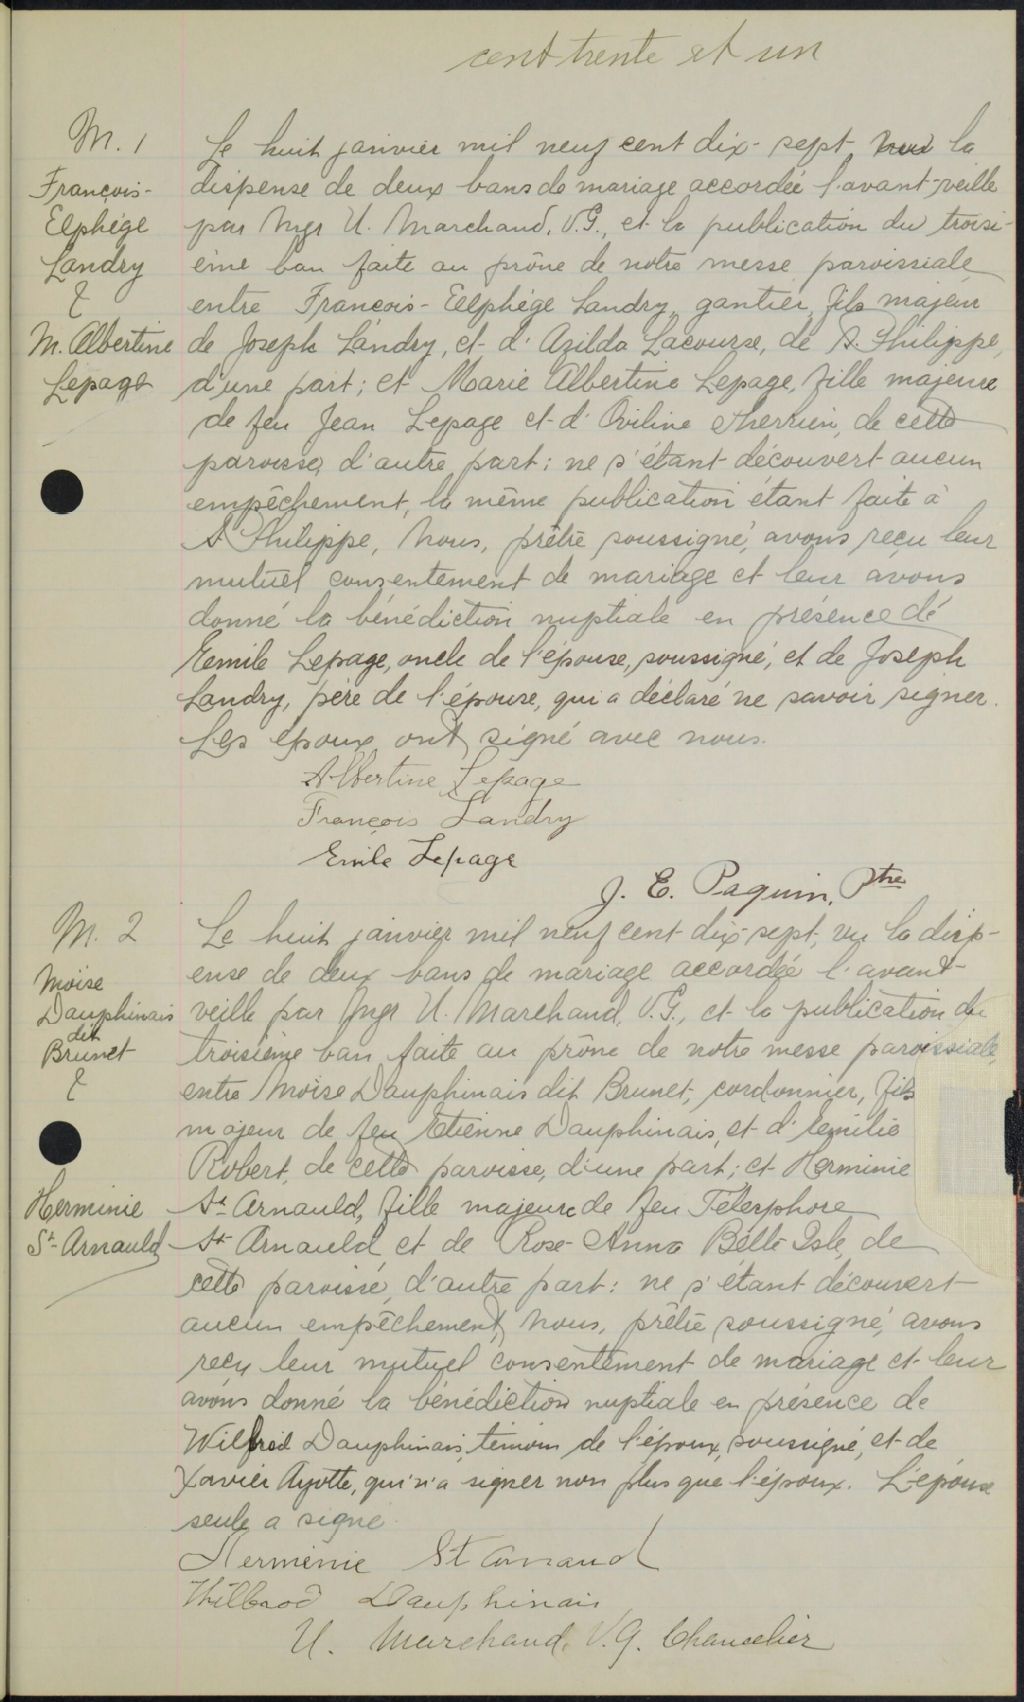 cent trente et un
M. 1
François-
Elphége
Landry
&
M. Albertine
Lepage
Le huit janvier mil neuf cent dix-sept, vu la
dispense de deux bans de mariage accordée l'avant-veille
par Mgr U. Marchand, V.G., et la publication du troisi-
ème ban faite au prône de notre messe paroissiale
entre François-Elphége Landry, gantier, fils majeur
de Joseph Landry, et d'Azilda Lacourse, de St. Philippe,
d'une part; et Marie Albertine Lepage, fille majeure
de feu Jean Lepage et d'Oviline Therrien, de cette
paroisse, d'autre part; ne s'étant découvert aucun
empêchement, la même publication étant faite à
St Philippe, Nous, prêtre soussigné, avons reçu leur
mutuel consentement de mariage et leur avons
donné la bénédiction nuptiale en présence de
Emile Lepage, oncle de l'épouse, soussigné, et de Joseph
Landry, père de l'épouse, qui a déclaré ne savoir signer.
Les époux ont signé avec nous.
Albertine Lepage
François Landry
Emile Lepage
J. E. Paquin, Ptre
M. 2
Moise
Dauphinais
dit
Brunet
&
Herminie
St-Arnauld
Le huit janvier mil neuf cent dix-sept, vu la disp-
ense de deux bans de mariage accordée l'avant-
veille par Mgr U. Marchand, V.G., et la publication du
troisième ban faite au prône de notre messe paroissiale
entre Moise Dauphinais dit Brunet, cordonnier, fils
majeur de feu Etienne Dauphinais, et d'Emilie
Robert, de cette paroisse, d'une part; et Herminie
St-Arnauld, fille majeure de feu Télesphore
St-Arnauld et de Rose-Anna Belle-Isle, de
cette paroisse, d'autre part: ne s'étant découvert
aucun empêchement, Nous, prêtre soussigné, avons
reçu leur mutuel consentement de mariage et leur
avons donné la bénédiction nuptiale en présence de
Wilfrid Dauphinais, témoin de l'époux, soussigné, et de
Xavier Ayotte, qui n'a signer non plus que l'époux. L'épouse
seule a signé.
Herménie St Arnaud
Dauphinais
U. Marchand, V.G. Chancelier